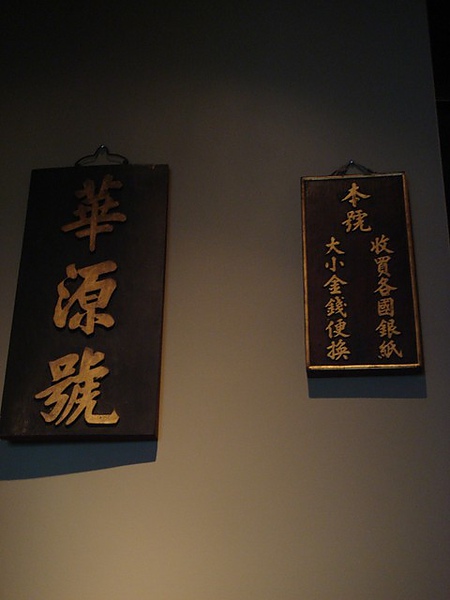 華源號
本號
收買各國銀紙
大小金錢便換